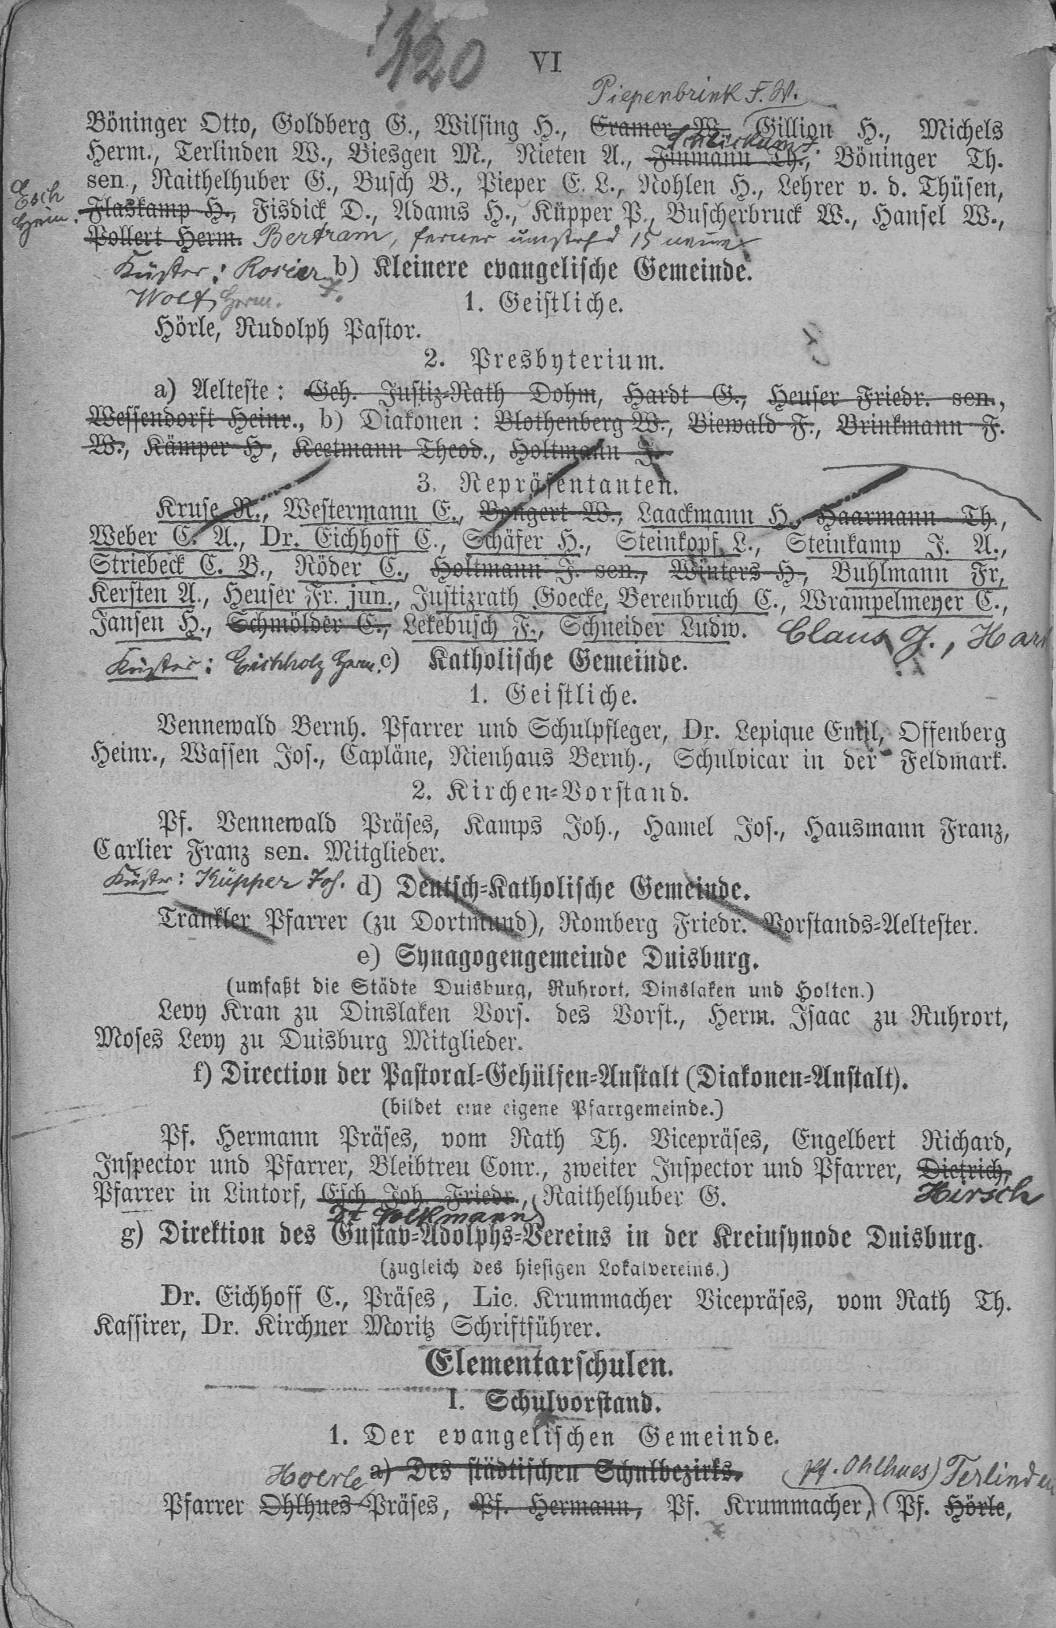 120
VI
Piepenbrink F. W.
Böninger Otto, Goldberg G., Wilsing H., Cramer W. Gillion H., Michels
Herm., Terlinden W., Biesgen M., Nieten A., Finmann Th., Böninger Th.
sen., Raithelhuber G., Busch B., Pieper E. L., Nohlen H., Lehrer v. d. Thüsen,
Esch
Heim.
Flaskamp H., Fisdick D., Adams H., Küpper P., Buscherbruck W., Hansel W.,
Pollert Herm. Bertram, ferner umstehd 15 neue
Küster: Rosier b) Kleinere evangelische Gemeinde.
Wolf, Herm. 1. Geistliche.
Hörle, Rudolph Pastor.
2. Presbyterium.
a) Aelteste: Geh. Justiz-Rath Dohm, Hardt G., Heuser Friedr. sen.,
Wessendorft Heinr., b) Diakonen: Blothenberg W., Biewald F., Brinkmann F.
W., Kämper H, Keetmann Theod., Holtmann J.
3. Repräsentanten.
Kruse R., Westermann E., Bongert W., Laackmann H. Haarmann Th.,
Weber C. A., Dr. Eichhoff C., Schäfer H., Steinkopf L., Steinkamp J. A.,
Striebeck C. B., Röder C., Holtmann J. sen., Winters H, Buhlmann Fr,
Kersten A., Heuser Fr. jun., Justizrath Goecke, Berenbruch C., Wrampelmeyer C.,
Jansen H., Schmölder E., Lekebusch F., Schneider Ludw. Claus J.,
Küster: Eichholz Herm. c) Katholische Gemeinde.
1. Geistliche.
Vennewald Bernh. Pfarrer und Schulpfleger, Dr. Lepique Emil, Offenberg
Heinr., Wassen Jos., Capläne, Nienhaus Bernh., Schulvicar in der Feldmark.
2. Kirchen-Vorstand.
Pf. Vennewald Präses, Kamps Joh., Hamel Jos., Hausmann Franz,
Carlier Franz sen. Mitglieder.
Küster: Küpper Joh. d) Deutsch-Katholische Gemeinde.
Tränkler Pfarrer (zu Dortmund), Romberg Friedr. Vorstands-Aeltester.
e) Synagogengemeinde Duisburg.
(umfaßt die Städte Duisburg, Ruhrort, Dinslaken und Holten.)
Levy Kran zu Dinslaken Vors. des Vorst., Herm. Isaac zu Ruhrort,
Moses Levy zu Duisburg Mitglieder.
f) Direction der Pastoral-Gehülfen-Anstalt (Diakonen-Anstalt).
(bildet eine eigene Pfarrgemeinde.)
Pf. Hermann Präses, vom Rath Th. Vicepräses, Engelbert Richard,
Inspector und Pfarrer, Bleibtreu Conr., zweiter Inspector und Pfarrer, Dietrich,
Pfarrer in Lintorf, Esch Joh. Friedr., Raithelhuber G. Hirsch
Dr Volkmann
g) Direktion des Gustav-Adolphs-Vereins in der Kreissynode Duisburg.
(zugleich des hiesigen Lokalvereins.)
Dr. Eichhoff C., Präses, Lic. Krummacher Vicepräses, vom Rath Th.
Kassirer, Dr. Kirchner Moritz Schriftführer.
Elementarschulen.
I. Schulvorstand.
1. Der evangelischen Gemeinde.
Hoerle a) Des städtischen Schulbezirks. (Pf. Ohlhues) Terlinden
Pfarrer Ohlhues Präses, Pf. Hermann, Pf. Krummacher, (Pf. Hörle,